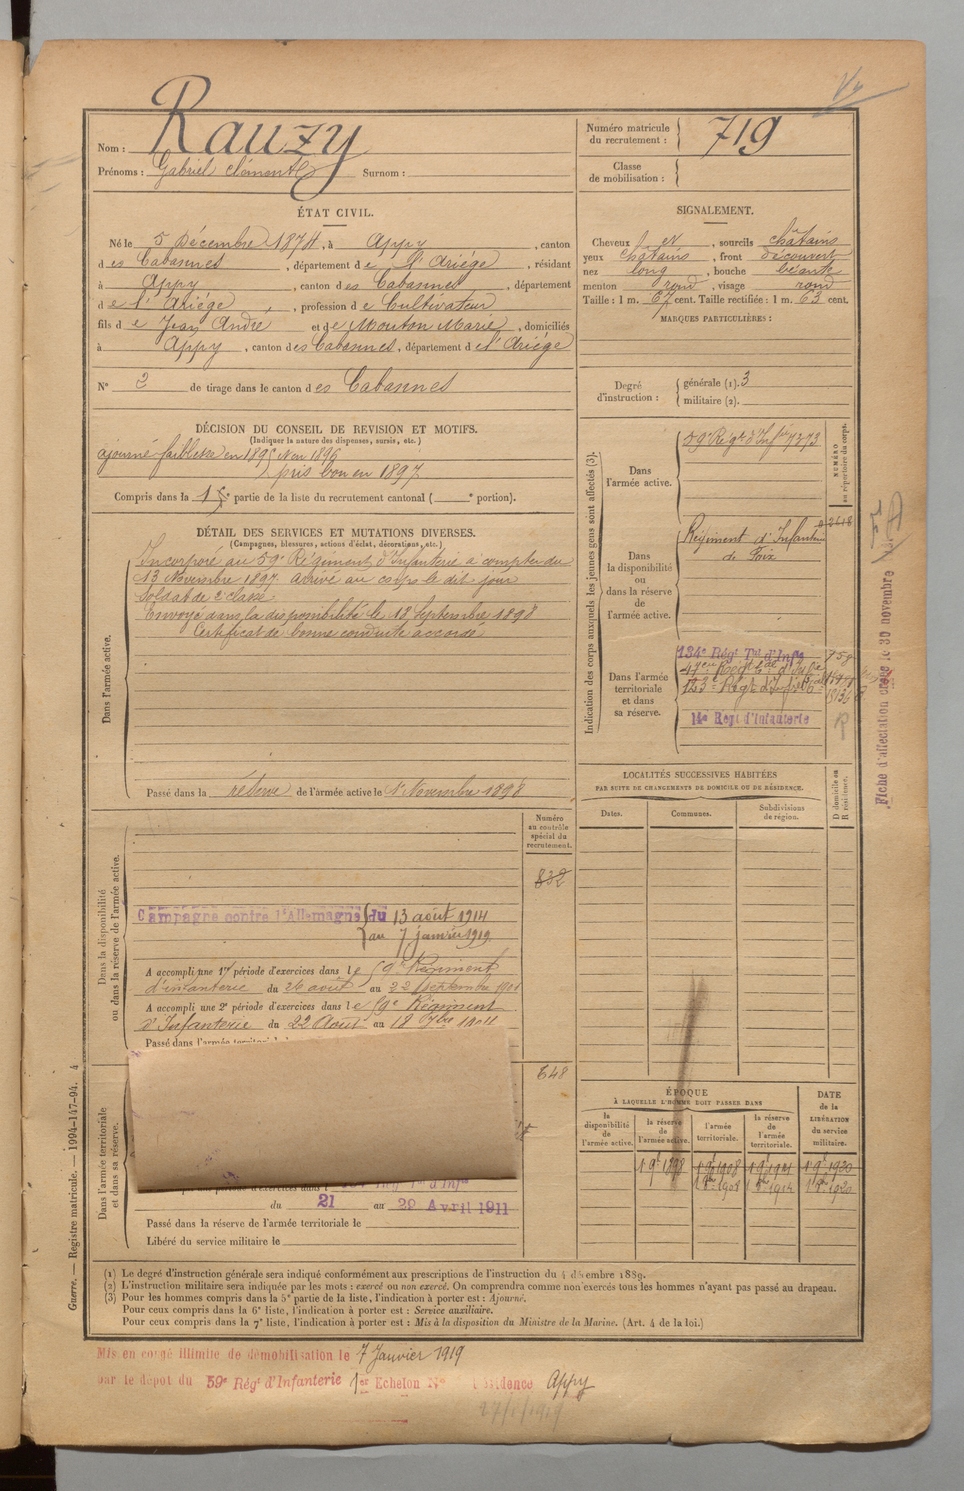 Nom : Rauzy
Prénoms : Gabriel Clément Surnom :
Numéro matricule du recrutement : 719
Classe de mobilisation :
ÉTAT CIVIL.
Né le 5 Décembre 1874, à Appy, canton
des Cabannes, département de l'Ariège, résidant
à Appy, canton des Cabannes, département
de l'Ariège, profession de Cultivateur
fils de Jean André et de Mouton Marie, domiciliés
à Appy, canton des Cabannes, département de l'Ariège
N° 2 de tirage dans le canton des Cabannes
SIGNALEMENT.
Cheveux et, sourcils châtains
yeux châtains, front découvert
nez long, bouche béante
menton rond, visage rond
Taille : 1 m. 67 cent. Taille rectifiée : 1 m. 63 cent.
MARQUES PARTICULIÈRES :
Degré d'instruction : générale (1). 3
militaire (2).
DÉCISION DU CONSEIL DE REVISION ET MOTIFS.
(Indiquer la nature des dispenses, sursis, etc.)
ajourné faiblesse en 1895 et en 1896
pris bon en 1897
Compris dans la e partie de la liste du recrutement cantonal ( e portion).
DÉTAIL DES SERVICES ET MUTATIONS DIVERSES.
(Campagnes, blessures, actions d'éclat, décorations, etc.)
Dans l'armée active.
Incorporé au 59e Régiment d'Infanterie à compter du
13 Novembre 1897. Arrivé au corps le dit jour
Soldat de 2e classe
Envoyé dans la disponibilité le 18 Septembre 1898
Certificat de bonne conduite accordé
Passé dans la réserve de l'armée active le 1er Novembre 1898
Indication des corps auxquels les jeunes gens sont affectés (3).
NUMÉRO au répertoire du corps.
Dans l'armée active.
59e Régt d'Infie 7373
Dans la disponibilité ou dans la réserve de l'armée active.
Régiment d'Infanterie
de Foix
Dans l'armée territoriale et dans sa réserve.
134e Régt Tal d'Infie
123e Régt d'Infie
14e Régt d'Infanterie
R
Fiche d'affectation créée le 30 novembre
LOCALITÉS SUCCESSIVES HABITÉES
PAR SUITE DE CHANGEMENTS DE DOMICILE OU DE RÉSIDENCE.
Dates. Communes. Subdivisions de région. D domicile ou R résidence.
Dans la disponibilité ou dans la réserve de l'armée active.
Numéro au contrôle spécial du recrutement.
832
Campagne contre l'Allemagne du 13 août 1914
au 7 janvier 1919
A accompli une 1re période d'exercices dans le 59e Régiment
d'infanterie du 26 août au 22 septembre 1901
A accompli une 2e période d'exercices dans le 59e Régiment
d'Infanterie du 22 Août au 18 7bre 1904
Dans l'armée territoriale et dans sa réserve.
648
du 21 au 29 Avril 1911
Passé dans la réserve de l'armée territoriale le
Libéré du service militaire le
ÉPOQUE
À LAQUELLE L'HOMME DOIT PASSER DANS
la disponibilité de l'armée active.
la réserve de l'armée active.
l'armée territoriale.
la réserve de l'armée territoriale.
DATE de la LIBÉRATION du service militaire.
(1) Le degré d'instruction générale sera indiqué conformément aux prescriptions de l'instruction du 4 décembre 1889.
(2) L'instruction militaire sera indiquée par les mots : exercé ou non exercé. On comprendra comme non exercés tous les hommes n'ayant pas passé au drapeau.
(3) Pour les hommes compris dans la 5e partie de la liste, l'indication à porter est : Ajourné.
Pour ceux compris dans la 6e liste, l'indication à porter est : Service auxiliaire.
Pour ceux compris dans la 7e liste, l'indication à porter est : Mis à la disposition du Ministre de la Marine. (Art. 4 de la loi.)
Guerre. — Registre matricule. — 1994-147-94. 4
Mis en congé illimité de démobilisation le 7 Janvier 1919
par le dépôt du 59e Régt d'Infanterie 1er Echelon N° résidence Appy